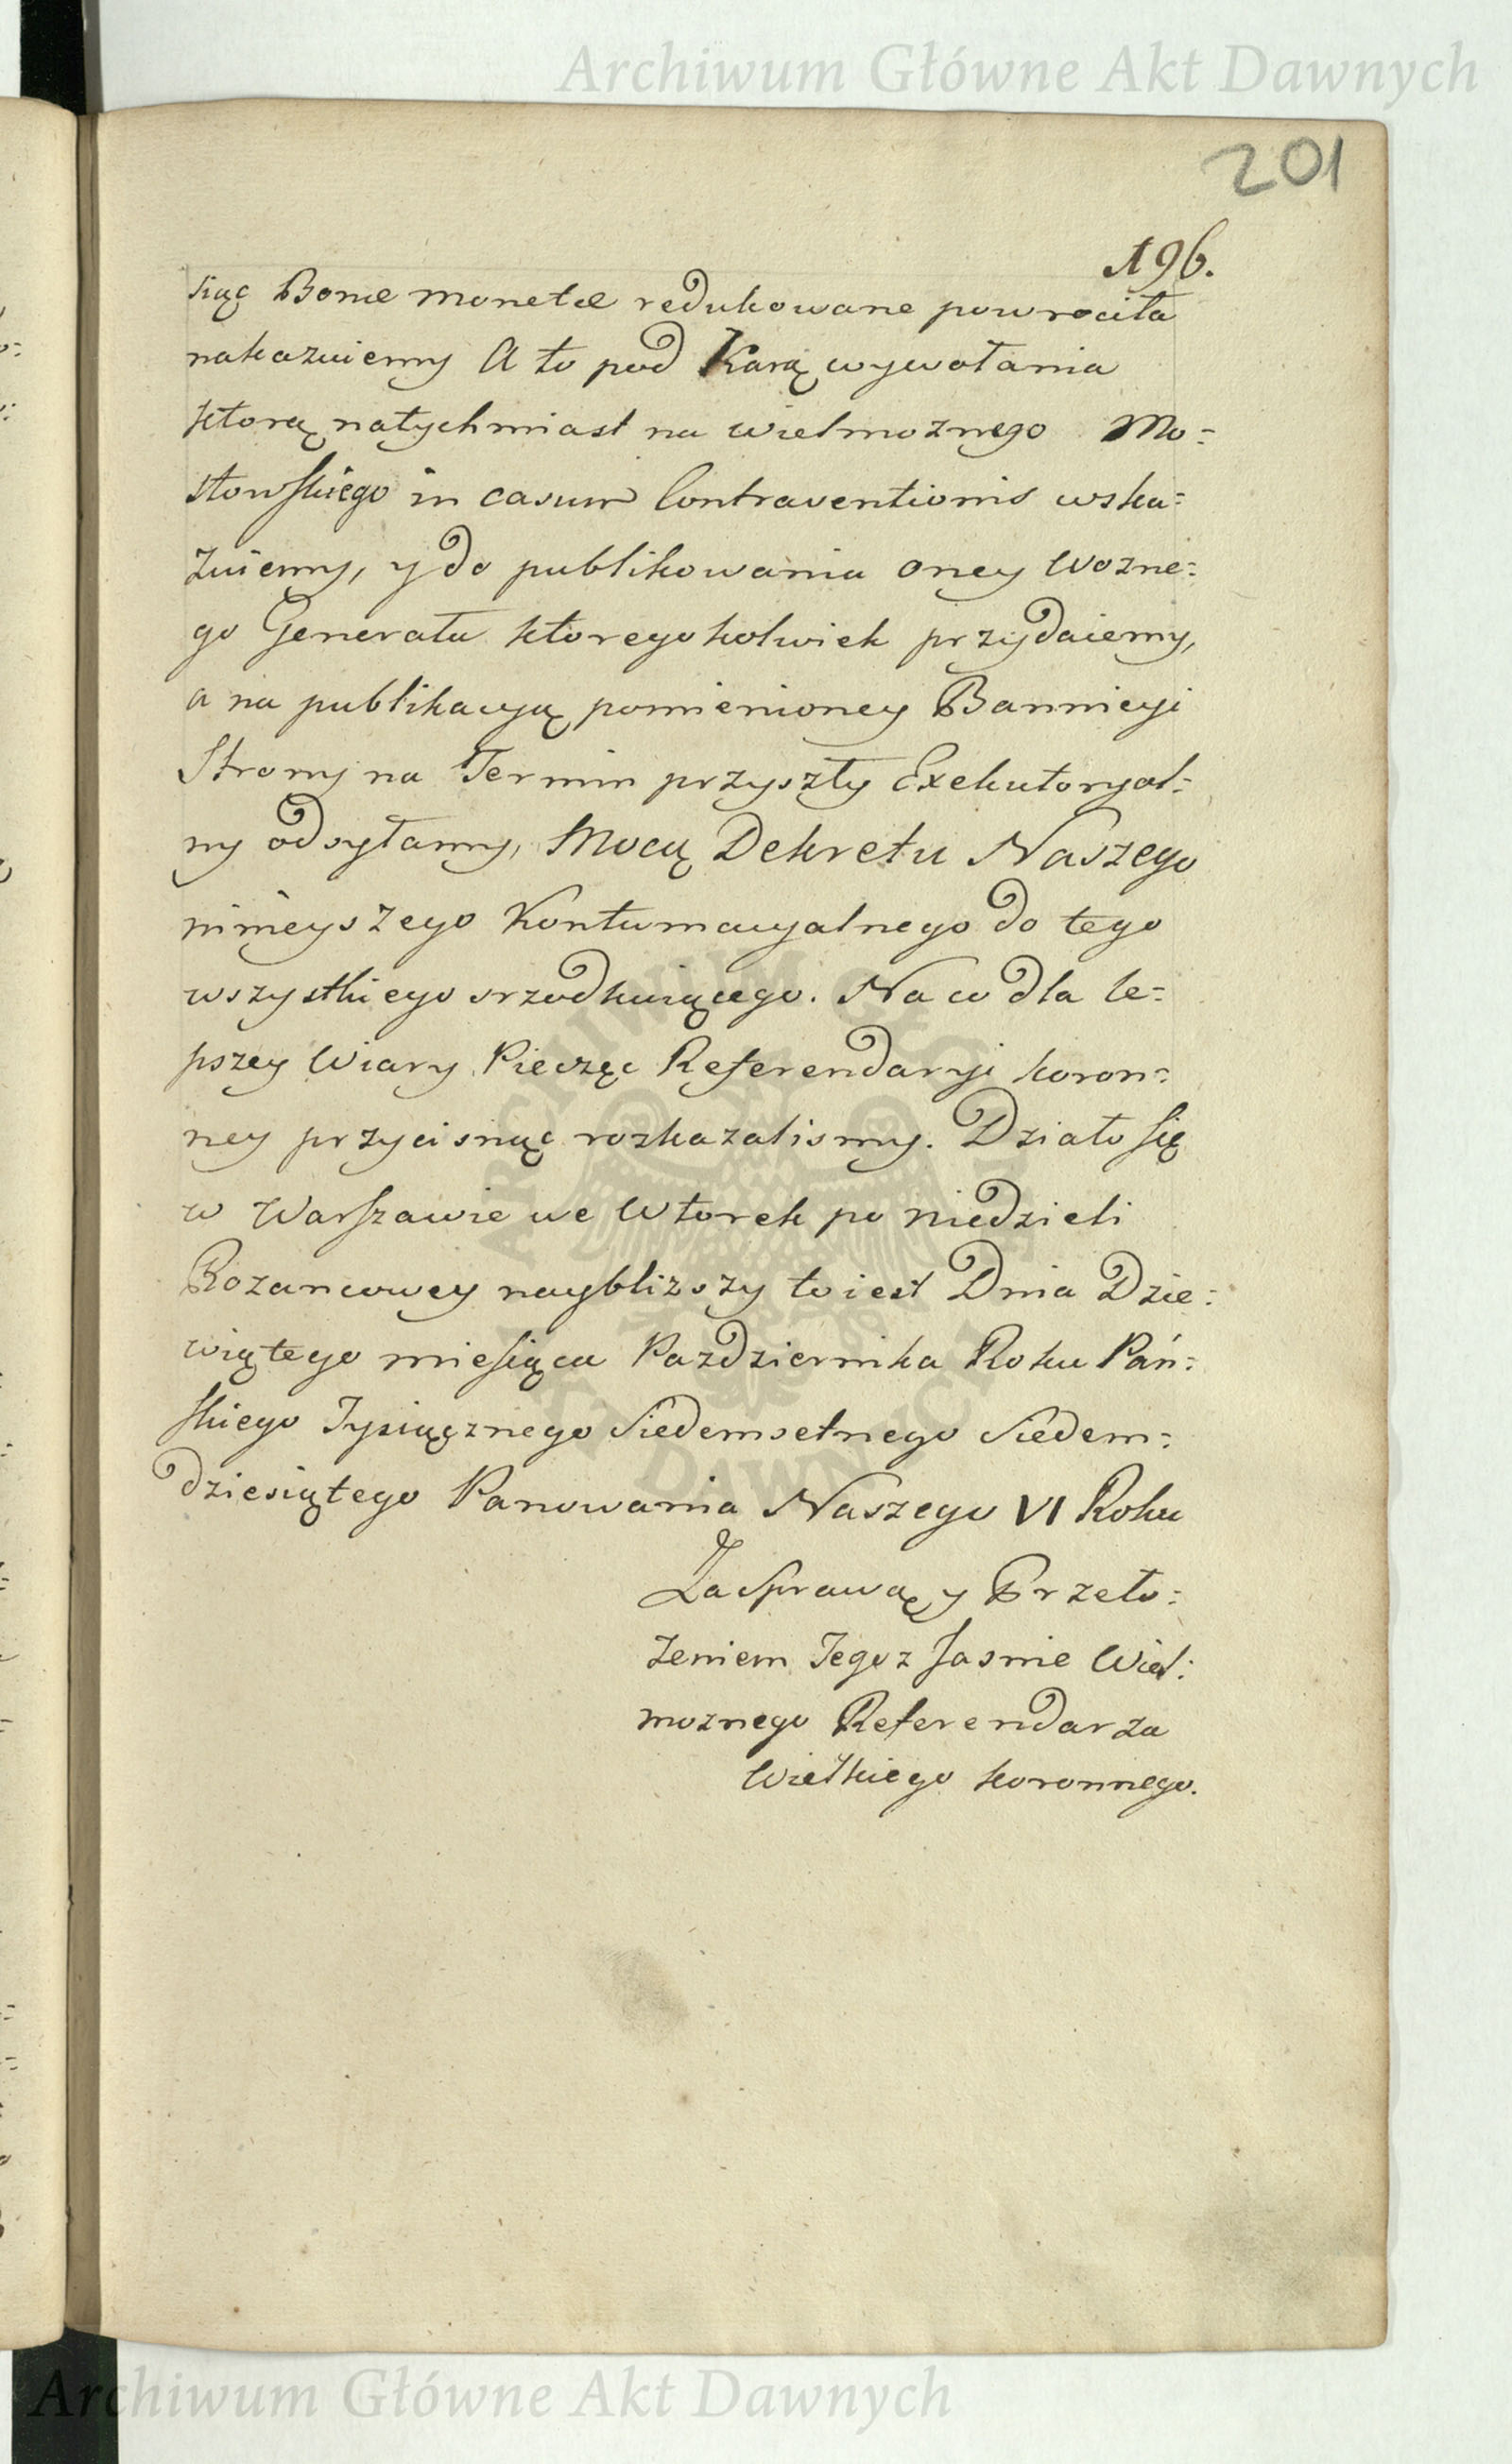 Archiwum Główne Akt Dawnych
201
196.
siąc Bonæ monetæ redukowane powrociła
nakazuiemy A to pod Karą wywołania
ktorą natychmiast na wielmoznego Mo=
stowskiego in casum Contraventionis wska=
zuiemy, y do publikowania oney Wozne=
go Generała ktoregokolwiek przydaiemy,
a na publikacyą pomienioney Bannicyi
Strony na Termin przyszły Exekutoryal=
ny odsyłamy, Mocą Dekretu Naszego
ninieyszego Kontumacyalnego do tego
wszystkiego srzodkuiącego. Na co dla le=
pszey Wiary Pieczęc Referendaryi koron=
ney przycisnąc rozkazalismy. Działo się
w Warszawie we Wtorek po niedzieli
Rozancowey naybliższy to iest Dnia Dzie=
wiątego miesiąca Pazdziernika Roku Pań=
skiego Tysiącznego Siedemsetnego Siedem=
dziesiątego Panowania Naszego VI Roku
Za Sprawą y Przeło=
zeniem Tegoz Jasnie Wiel=
moznego Referendarza
Wielkiego koronnego.
Archiwum Główne Akt Dawnych